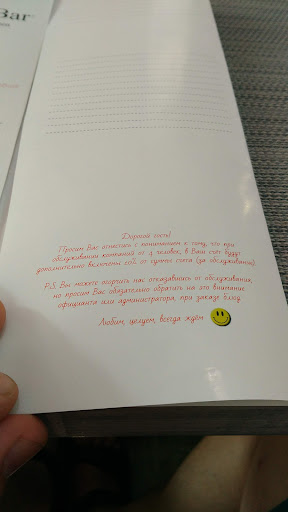 Bar
Дорогой гость!
Просим Вас отнестись с пониманием к тому, что при
обслуживании компаний от 4 человек, в Ваш счёт будут
дополнительно включены от суммы счёта (за обслуживание).
P.S. Вы можете огорчить нас отказавшись от обслуживания,
но просим Вас обязательно обратить на это внимание
официанта или администратора, при заказе блюд.
Любим, целуем, всегда ждём